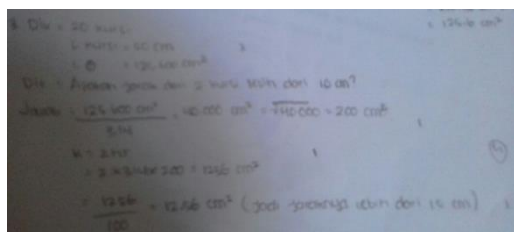 = 125.6 cm²
Dik = 20 kursi
L kursi = 50 cm
L = 125.600 cm²
Dit : Apakah jarak dari 2 kursi lebih dari 10 cm?
Jawab = 125.600 cm² = 40.000 cm² = √40.000 = 200 cm²
3,14
K = 2πr
= 2 × 3,14 × 200 = 1256 cm²
= 1256 = 12,56 cm² (jadi jaraknya lebih dari 15 cm)
100